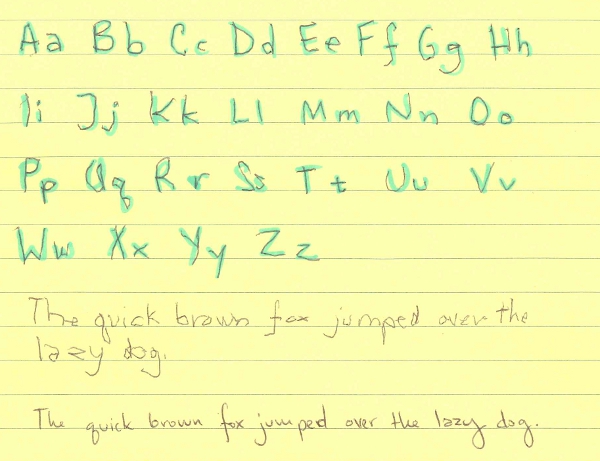 Aa Bb Cc Dd Ee Ff Gg Hh
Ii Jj Kk Ll Mm Nn Oo
Pp Qq Rr Ss Tt Uu Vv
Ww Xx Yy Zz
The quick brown fox jumped over the
lazy dog.
The quick brown fox jumped over the lazy dog.